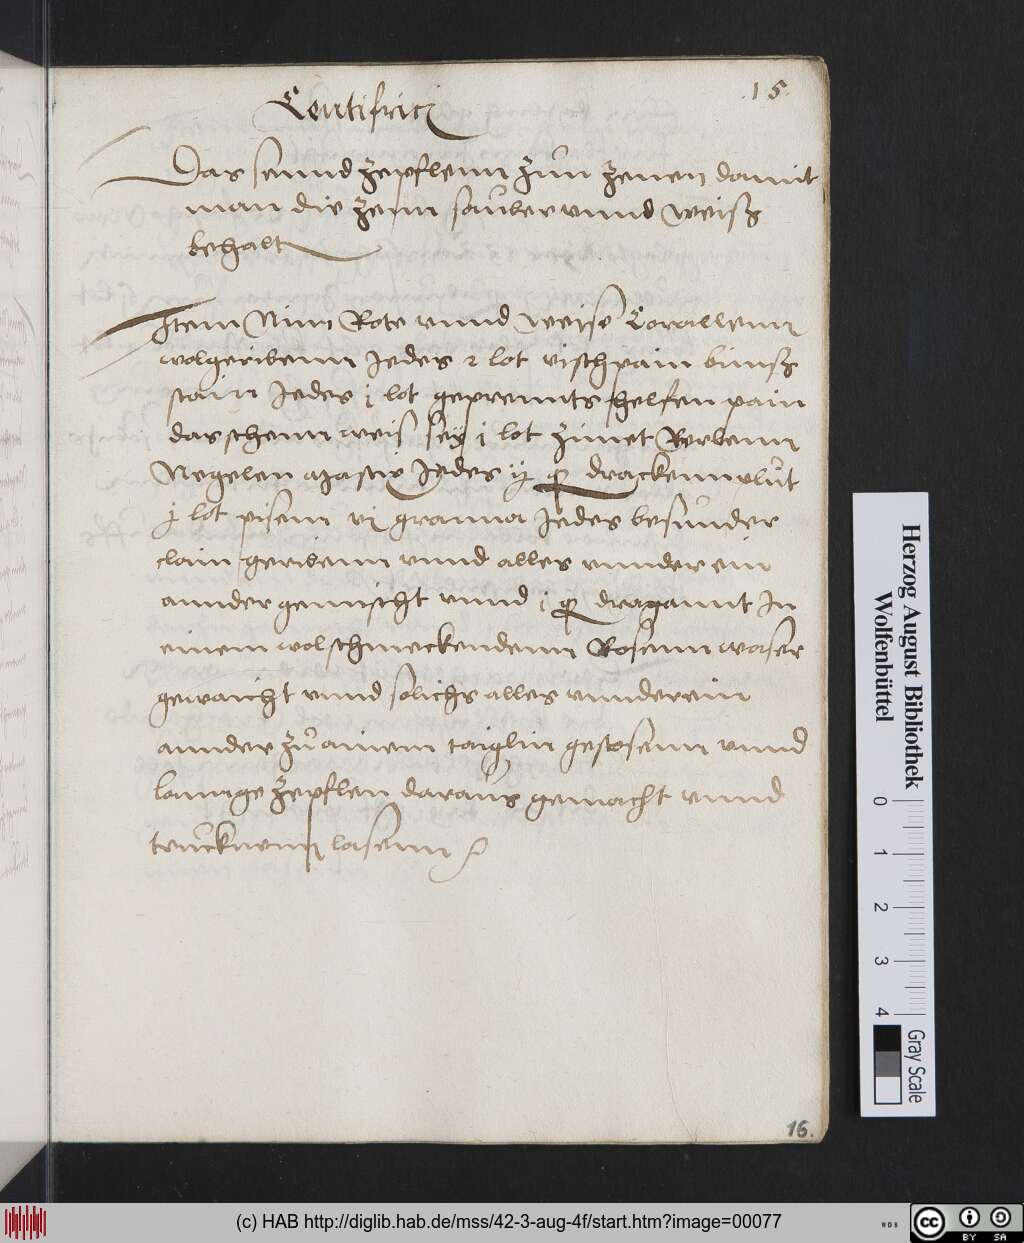 15
Dentifricj
Das seind Zepflenn zun Zenen damit
man die Zenn sauber vnnd weisß
behalt
Item Nim Rote vnnd weise Corallenn
wolgeribenn Jedes 2 lot vischpain bimsß
stain Jedes j lot geprennts helfenpain
das schenn weis sey j lot Zimet
Negelen Mastix Jedes ij drackennplut
j lot pisem vj granna Jedes besunder
clain geribenn vnnd alles vnnder ein
annder gemischt vnnd j dragannt In
einem wolschmeckendenn Rosenn waser
gewaicht vnnd solichs alles vnnderein
annder zu ainem taiglin gestosenn vnnd
lannge Zepflen daraus gemacht vnnd
trucknenn lasenn
16.
Herzog August Bibliothek
Wolfenbüttel
0 1 2 3 4
Gray Scale
(c) HAB http://diglib.hab.de/mss/42-3-aug-4f/start.htm?image=00077
WDB
cc BY SA